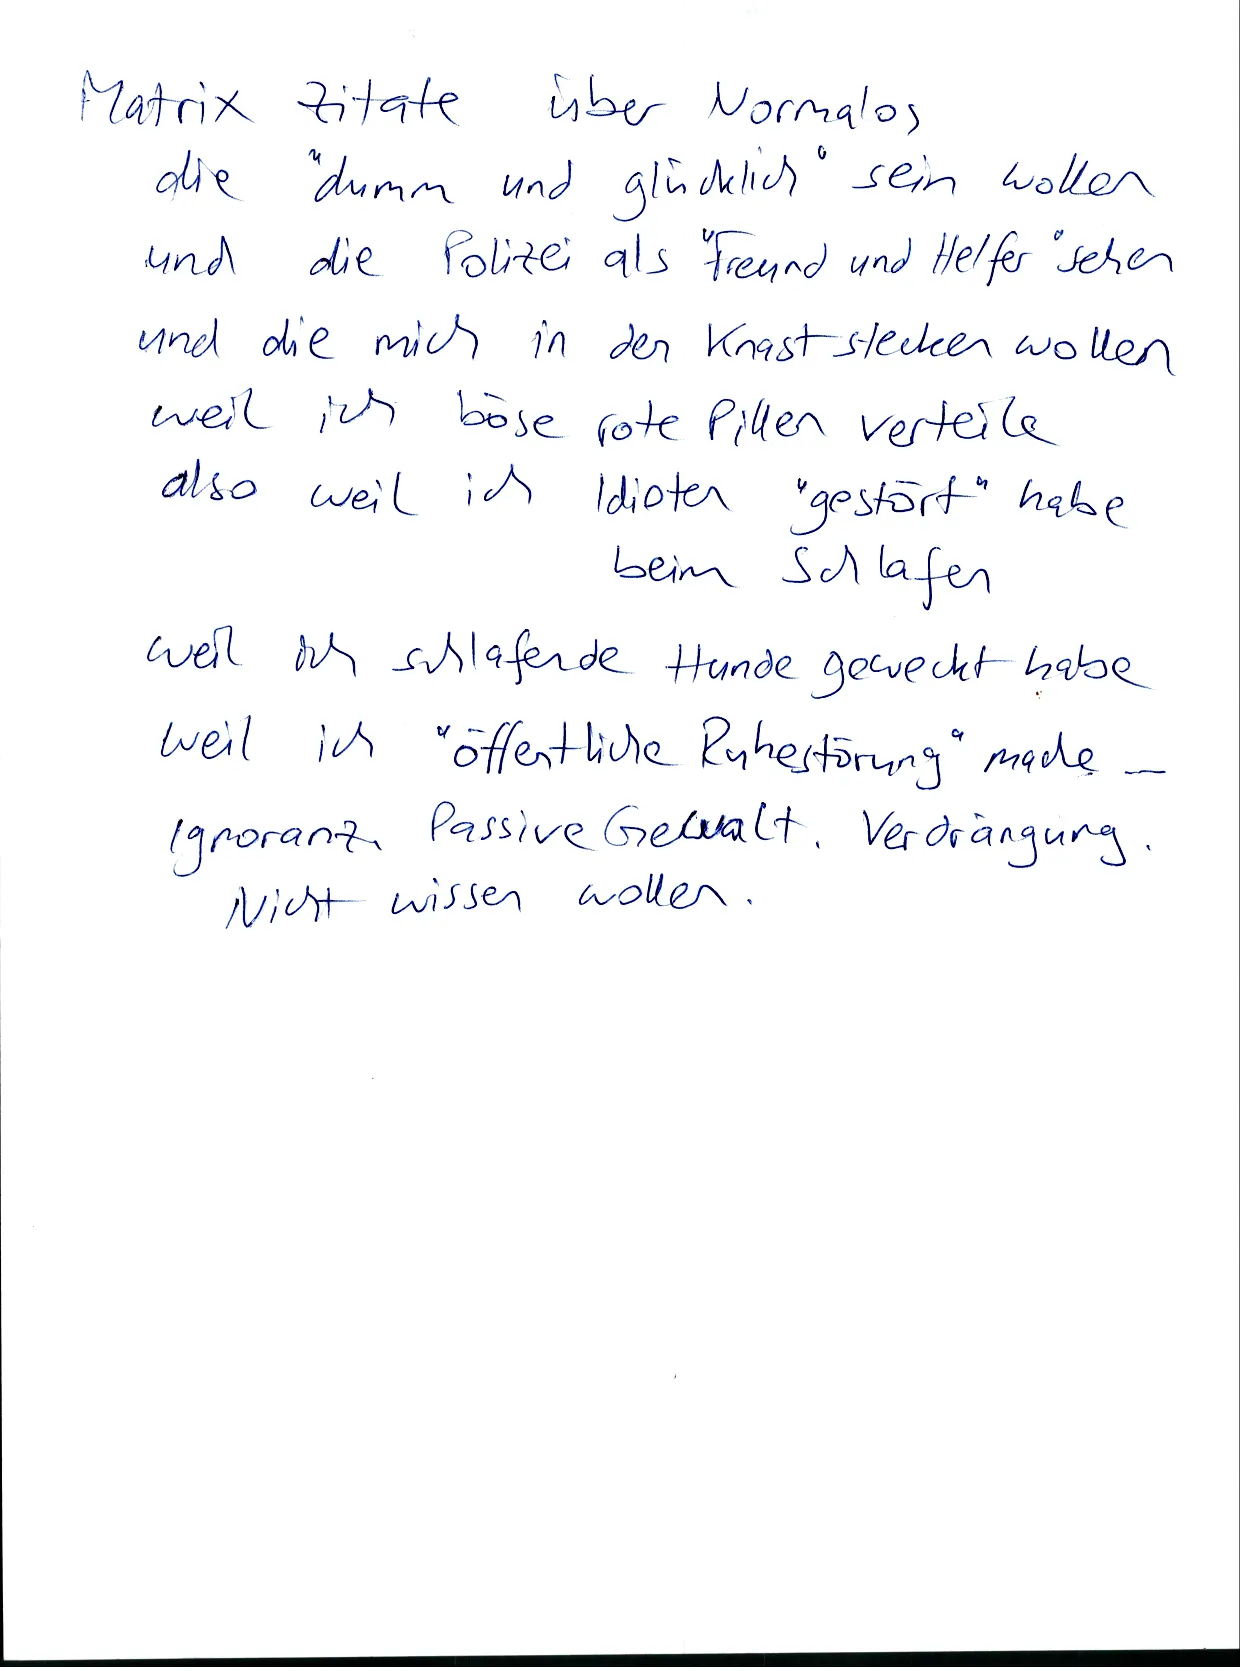 Matrix Zitate über Normalos
die "dumm und glücklich" sein wollen
und die Polizei als "Freund und Helfer" sehen
und die mich in den Knast stecken wollen
weil ich böse rote Pillen verteile
also weil ich Idioten "gestört" habe
beim Schlafen
weil ich schlafende Hunde geweckt habe
weil ich "öffentliche Ruhestörung" mache –
Ignoranz. Passive Gewalt. Verdrängung.
Nicht wissen wollen.